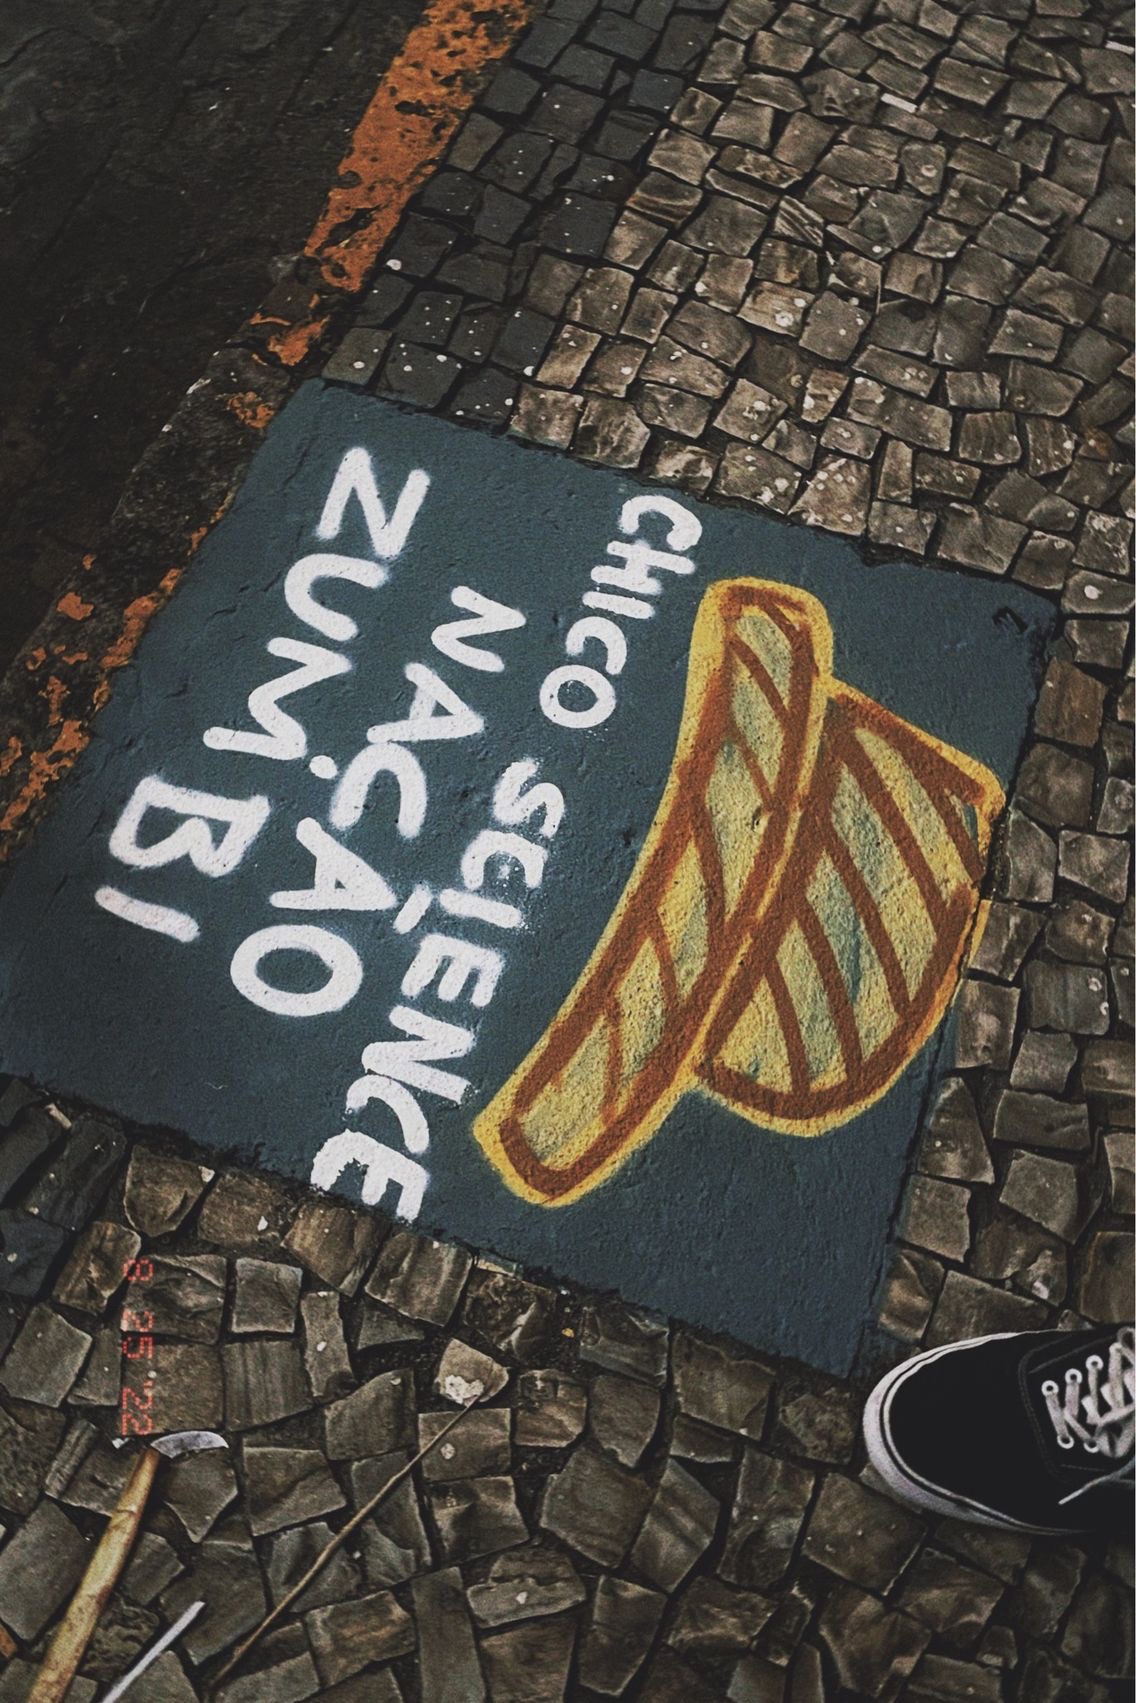 CHICO SCIENCE
NAÇÃO
ZUMBI
8 25 '22